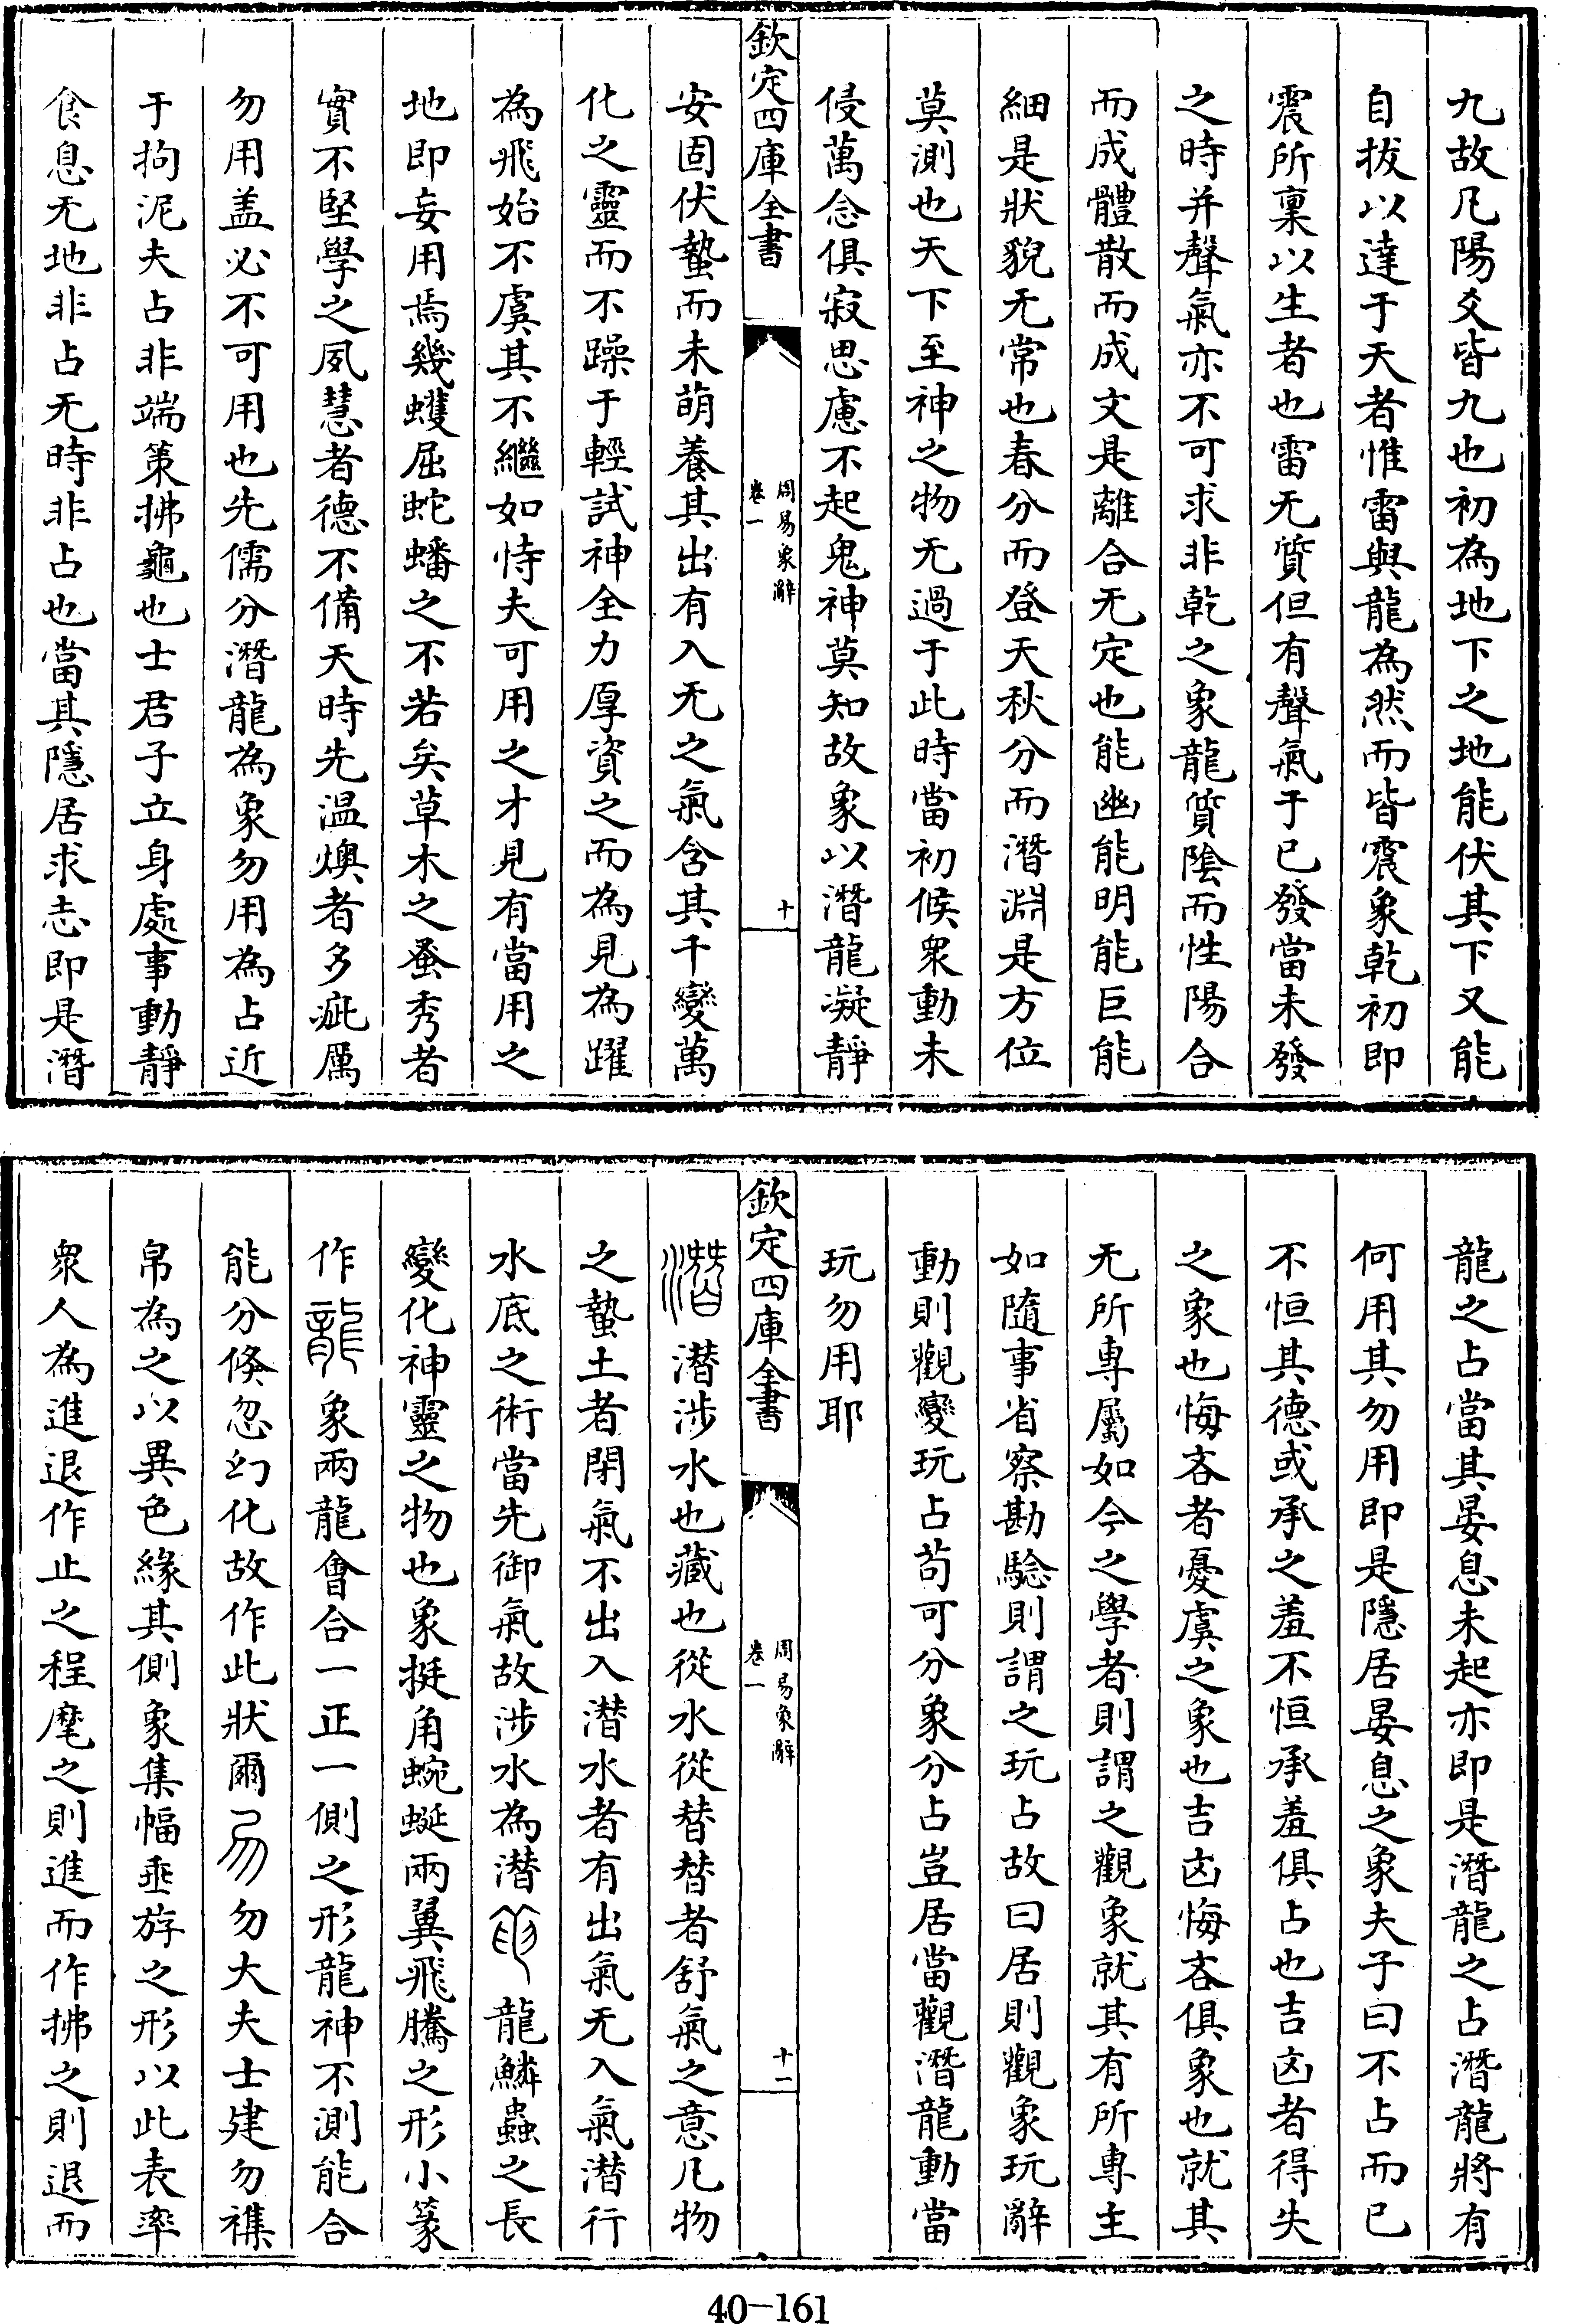 九故凡陽爻皆九也初為地下之地能伏其下又能
自拔以達于天者惟雷與龍為然而皆震象乾初即
震所稟以生者也雷无質但有聲氣于已發當未發
之時并聲氣亦不可求非乾之象龍質陰而性陽合
而成體散而成文是離合无定也能幽能明能巨能
細是狀貌无常也春分而登天秋分而潛淵是方位
莫測也天下至神之物无過于此時當初候衆動未
侵萬念俱寂思慮不起鬼神莫知故象以潛龍凝靜
欽定四庫全書
周易象辭
卷一
十
安固伏蟄而未萌養其出有入无之氣含其千變萬
化之靈而不躁于輕試神全力厚資之而為見為躍
為飛始不虞其不繼如恃夫可用之才見有當用之
地即妄用焉幾蠖屈蛇蟠之不若矣草木之蚤秀者
實不堅學之夙慧者德不備天時先温燠者多疵厲
勿用盖必不可用也先儒分潛龍為象勿用為占近
于拘泥夫占非端策拂龜也士君子立身處事動靜
食息无地非占无時非占也當其隱居求志即是潛
龍之占當其晏息未起亦即是潛龍之占潛龍將有
何用其勿用即是隱居晏息之象夫子曰不占而已
不恒其德或承之羞不恒承羞俱占也吉凶者得失
之象也悔吝者憂虞之象也吉凶悔吝俱象也就其
无所專屬如今之學者則謂之觀象就其有所專主
如隨事省察勘騐則謂之玩占故曰居則觀象玩辭
動則觀變玩占苟可分象分占豈居當觀潛龍動當
玩勿用耶
欽定四庫全書
周易象辭
卷一
十一
潛潛涉水也藏也從水從朁朁者舒氣之意凡物
之蟄土者閉氣不出入潛水者有出氣无入氣潛行
水底之術當先御氣故涉水為潛龍龍鱗蟲之長
變化神靈之物也象挺角蜿蜒兩翼飛騰之形小篆
作龍象兩龍會合一正一側之形龍神不測能合
能分倏忽幻化故作此狀爾勿勿大夫士建勿襍
帛為之以異色緣其側象集幅垂斿之形以此表率
衆人為進退作止之程麾之則進而作拂之則退而
40-161